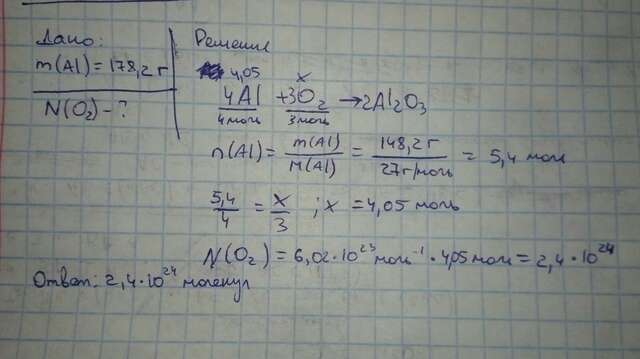 Дано:
m(Al) = 178,2 г
N(O₂) - ?
Решение
4,05 x
4Al + 3O₂ → 2Al₂O₃
4 моль 3 моль
n(Al) = m(Al) / M(Al) = 148,2 г / 27 г/моль = 5,4 моль
5,4 / 4 = x / 3 ; x = 4,05 моль
N(O₂) = 6,02 · 10²³ моль⁻¹ · 4,05 моль = 2,4 · 10²⁴
Ответ: 2,4 · 10²⁴ молекул